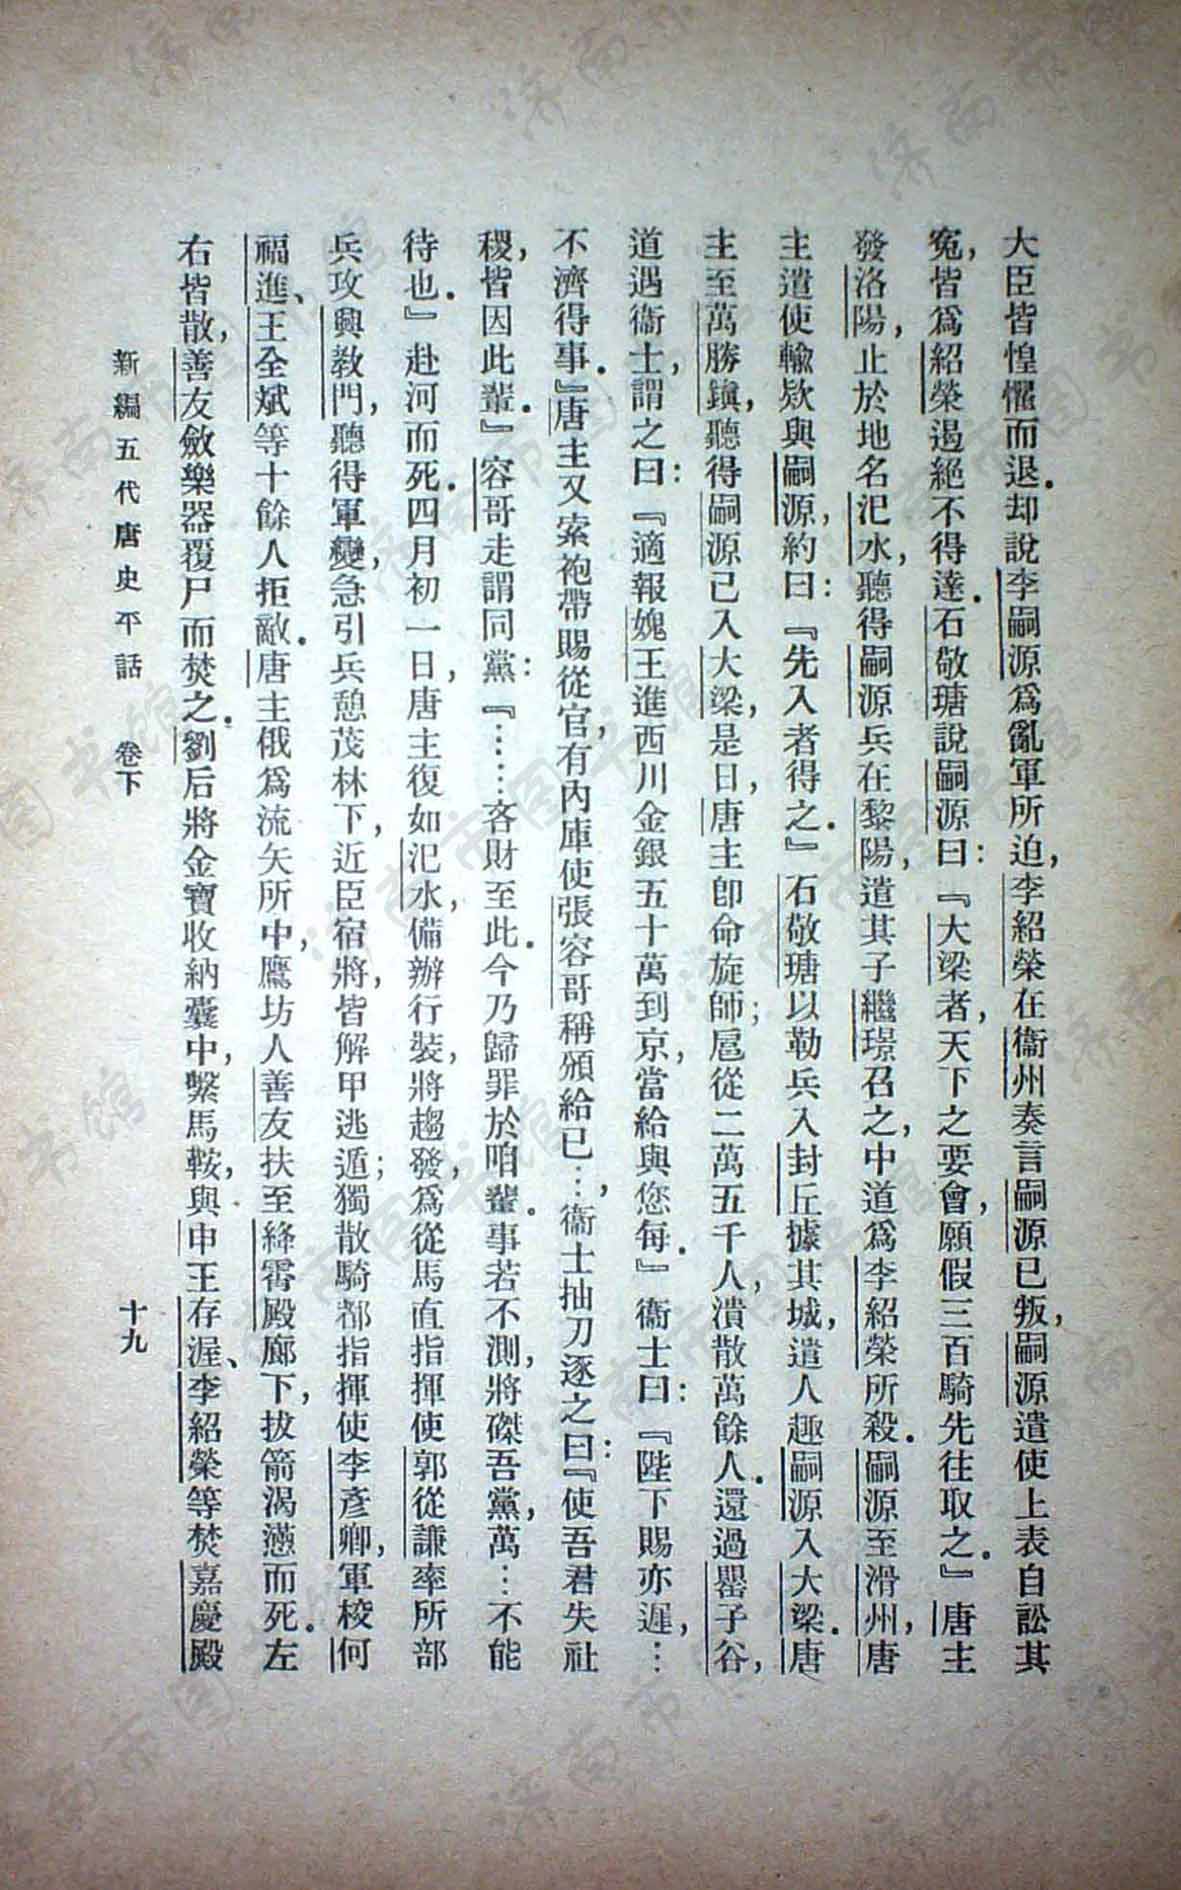 大臣皆惶懼而退.却說李嗣源爲亂軍所迫,李紹榮在衞州奏言嗣源已叛,嗣源遣使上表自訟其
寃,皆爲紹榮遏絕不得達.石敬瑭說嗣源曰:『大梁者,天下之要會,願假三百騎先往取之.』唐主
發洛陽,止於地名汜水,聽得嗣源兵在黎陽,遣其子繼璟召之,中道爲李紹榮所殺.嗣源至滑州,唐
主遣使輸欵與嗣源,約曰:『先入者得之.』石敬瑭以勒兵入封丘據其城,遣人趣嗣源入大梁.唐
主至萬勝鎭,聽得嗣源已入大梁,是日,唐主卽命旋師;扈從二萬五千人,潰散萬餘人.還過罌子谷,
道遇衞士,謂之曰:『適報媿王進西川金銀五十萬到京,當給與您每.』衞士曰:『陛下賜亦遲,…
不濟得事.』唐主又索袍帶賜從官,有內庫使張容哥稱頒給已…,衞士抽刀逐之曰:『使吾君失社
稷,皆因此輩.』容哥走謂同黨:『……吝財至此.今乃歸罪於咱輩.事若不測,將磔吾黨,萬…不能
待也.』赴河而死.四月初一日,唐主復如汜水,備辦行裝,將趨發,爲從馬直指揮使郭從謙率所部
兵攻興教門,聽得軍變,急引兵憩茂林下,近臣宿將,皆解甲逃遁;獨散騎都指揮使李彥卿,軍校何
福進、王全斌等十餘人拒敵.唐主俄爲流矢所中,鷹坊人善友扶至絳霄殿廊下,拔箭渴懣而死.左
右皆散,善友斂樂器覆尸而焚之.劉后將金寶收納囊中,繫馬鞍,與申王存渥、李紹榮等焚嘉慶殿
新編五代唐史平話 卷下 十九
济南市图书馆